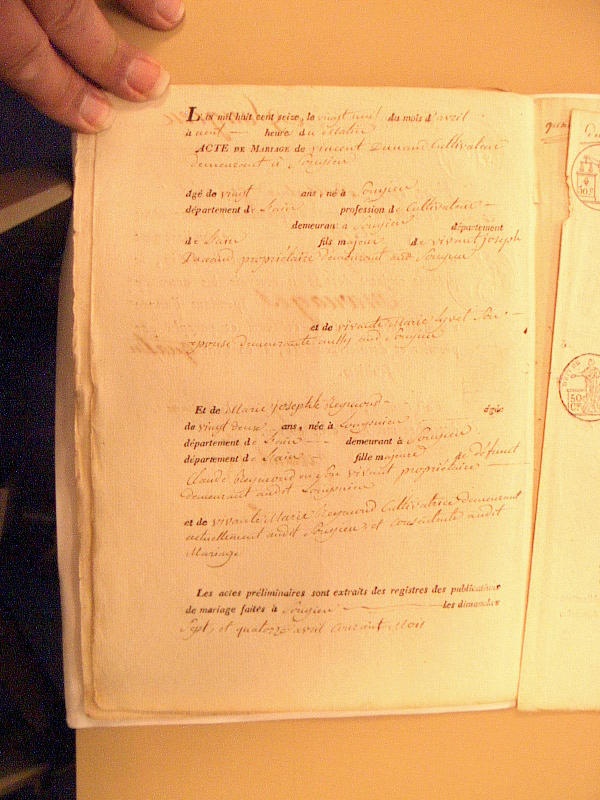 L'an mil huit cent seize, le vingt neuf du mois d'avril
à neuf heure du Matin
ACTE DE MARIAGE de Vincent Cultivateur
demeurant à Songieu
âgé de vingt ans, né à Songieu
département de Lain profession de Cultivateur
demeurant à Songieu département
de Lain fils majeur de vivant joseph
propriétaire demeurant audit Songieu
et de vivante Marie Son
epouse demeurante aussy audit Songieu
Et de Marie Josephte Reymond âgée
de vingt deux ans, née à
département de Lain demeurant à Songieu
département de Lain fille majeure de défunt
Claude Reymond en Son vivant propriétaire
demeurant audit
et de vivante Marie Reymond Cultivatrice demeurant
actuellement audit Songieu, et consentante audit
Mariage
Les actes préliminaires sont extraits des registres des publications
de mariage faites à Songieu les dimanches
Sept, et quatorze avril courant Mois
50 c
50